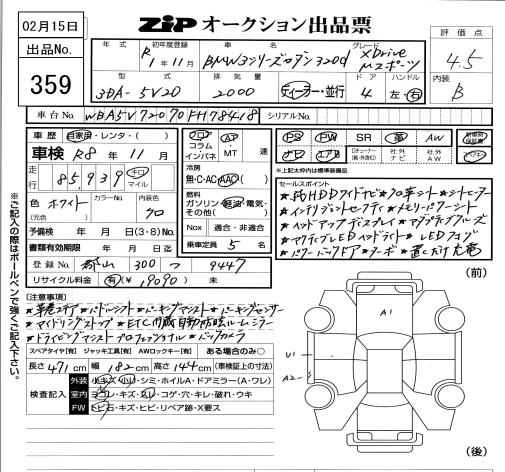 02月15日
ZIP オークション出品票
出品No.
359
評価点
4.5
内装
B
年式 初年度登録 車名 グレード
R1年11月 BMW3シリーズセダン320d xDrive Mスポーツ
型式 排気量 ドア ハンドル
3DA-5V20 2000 ディーラー・並行 4 左・右
車台No. WBA5V72070FH78418 シリアルNo.
車歴 自家用・レンタ・( )
車検 R8年11月
走行 85,939 キロ マイル
色 ホワイト カラーNo. 内装色 クロ
(元色)
予備検 年 月 日(3・8)No.
書類有効期限 年 月 日迄
登録No. 郡山 300 つ 9447
リサイクル料金 有(¥19090) 未
フロア コラム インパネ
AT・MT 速
冷房
無・C・AC・AAC
燃料
ガソリン・軽油・電気・その他( )
Nox 適合・非適合
乗車定員 5 名
PS PW SR 革 AW
ナビ エアB Dチューナー(純・外含む) 社外ナビ 社外AW
*上記太枠内は標準装備品
セールスポイント
★純HDDワイドナビ★クロ革シート★シートヒーター
★インテリジェントセーフティ★メモリーパワーシート
★ヘッドアップディスプレイ★アダプティブクルーズ
★アダプティブLEDヘッドライト★LEDフォグ
★パワーバックドア★ターボ★置くだけ充電
[注意事項]
★革巻タイプ★パドルシフト★パーキングアシスト★パーキングセンサー
★アイドリングストップ★ETC内蔵自動防眩ルームミラー
★ドライビングアシストプロフェッショナル★バックカメラ
スペアタイヤ[有] ジャッキ工具[有] AWロックキー[有] ある場合のみ○
長さ 471cm 幅 182cm 高さ 144cm (車検証上の寸法)
検査記入
外装 小キズ・小凹・シミ・ホイルA・ドアミラー(A・ワレ)
室内 ヨゴレ・キズ・スレ・コゲ・穴・キレ・破れ・ウキ
FW トビ石・キズ・ヒビ・リペア跡・X要ス
(前)
A1
U1
A2
(後)
※ご記入の際はボールペンで強くご記入下さい。